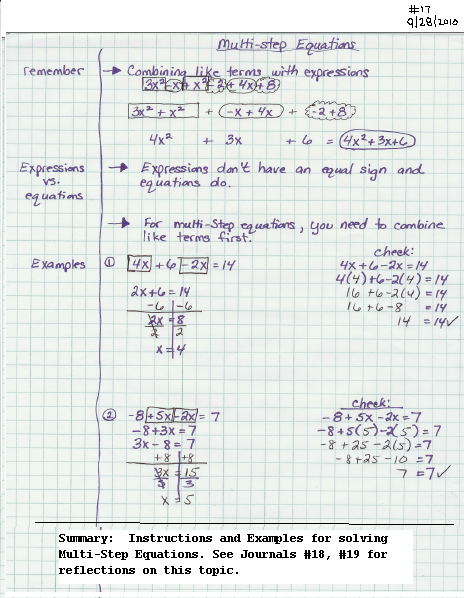 #17
9/28/2010
Multi-step Equations
remember → Combining like terms with expressions
3x² - x + x² - 2 + 4x + 8
3x² + x² + -x + 4x + -2 + 8
4x² + 3x + 6 = 4x² + 3x + 6
Expressions vs. equations → Expressions don't have an equal sign and
equations do.
→ For multi-step equations, you need to combine
like terms first.
Examples ① 4x + 6 - 2x = 14
2x + 6 = 14
-6 -6
2x = 8
2 2
x = 4
check:
4x + 6 - 2x = 14
4(4) + 6 - 2(4) = 14
16 + 6 - 2(4) = 14
16 + 6 - 8 = 14
14 = 14 ✓
② -8 + 5x - 2x = 7
-8 + 3x = 7
3x - 8 = 7
+8 +8
3x = 15
3 3
x = 5
check:
-8 + 5x - 2x = 7
-8 + 5(5) - 2(5) = 7
-8 + 25 - 2(5) = 7
-8 + 25 - 10 = 7
7 = 7 ✓
Summary: Instructions and Examples for solving
Multi-Step Equations. See Journals #18, #19 for
reflections on this topic.